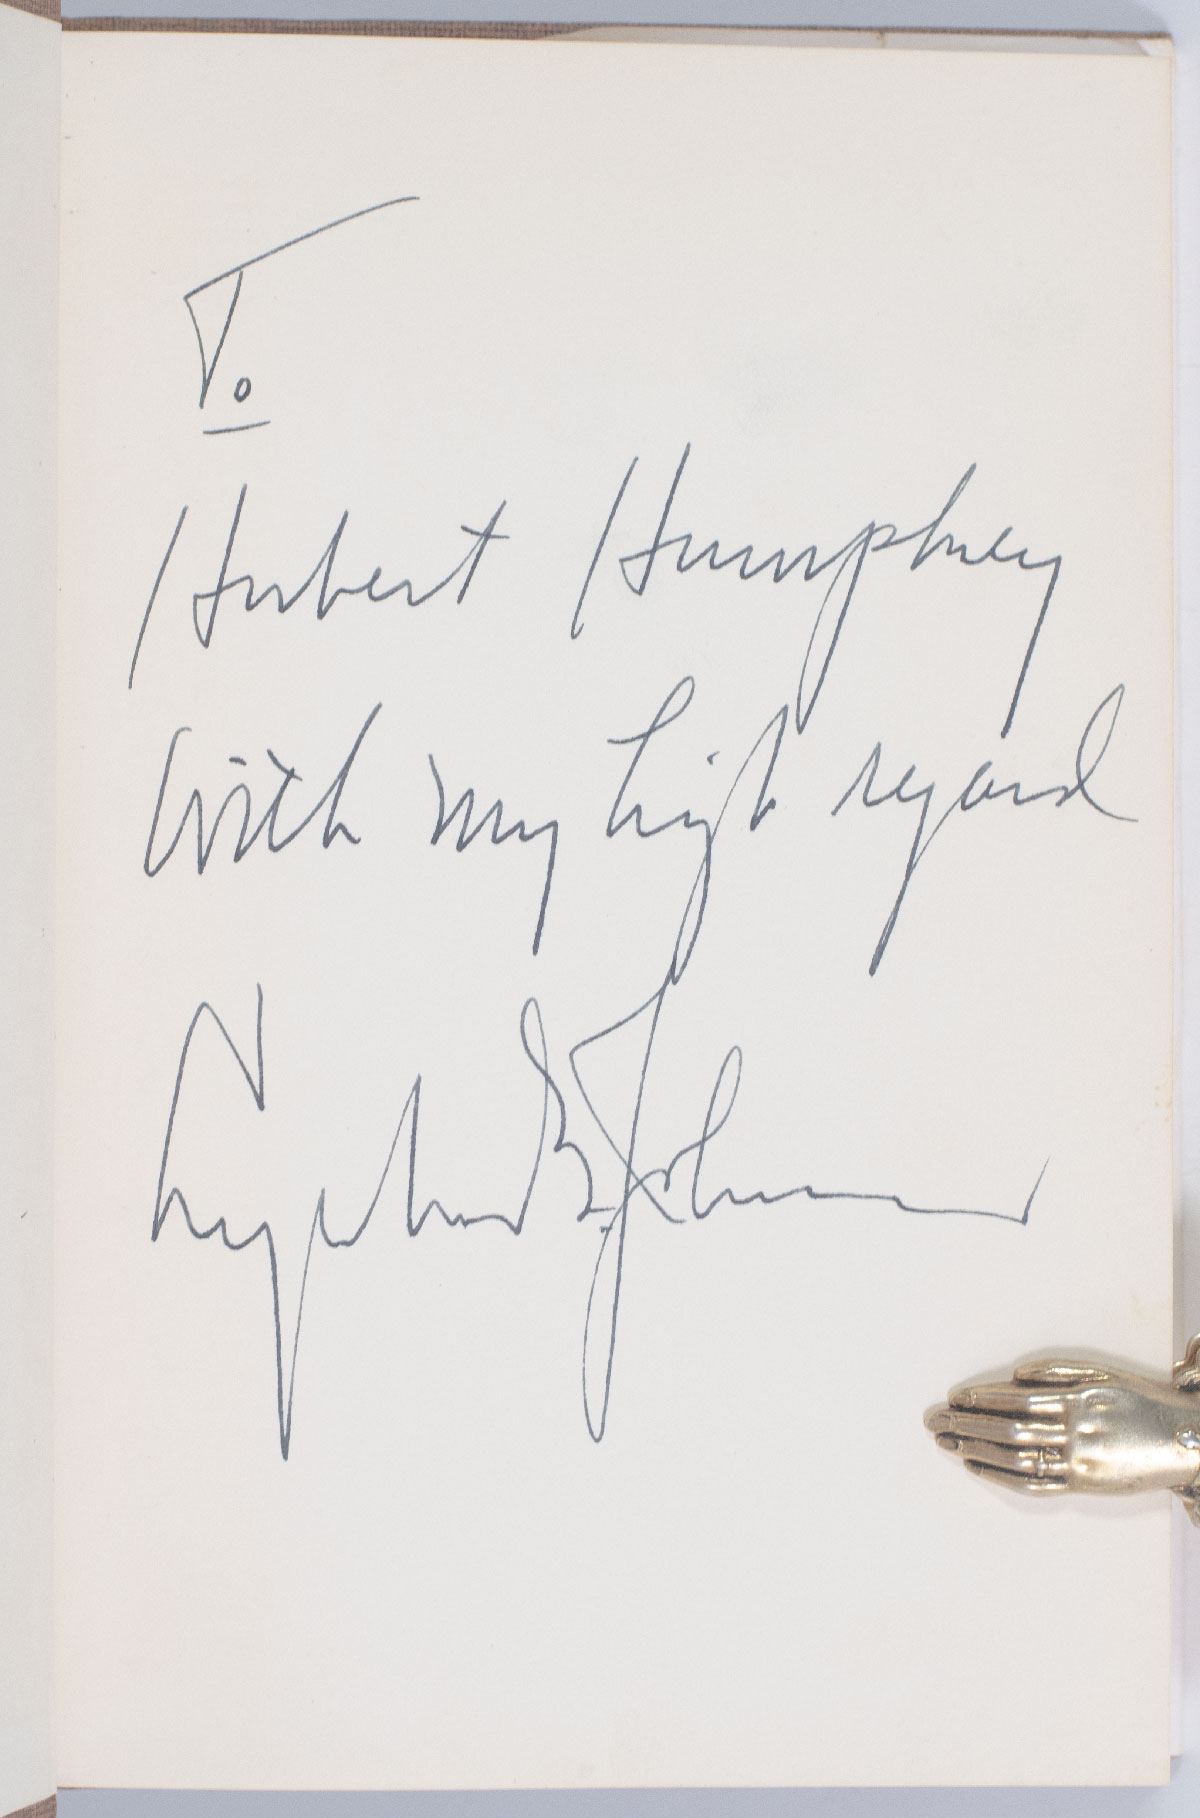 To
Hubert Humphrey
with my high regard
Lyndon B. Johnson